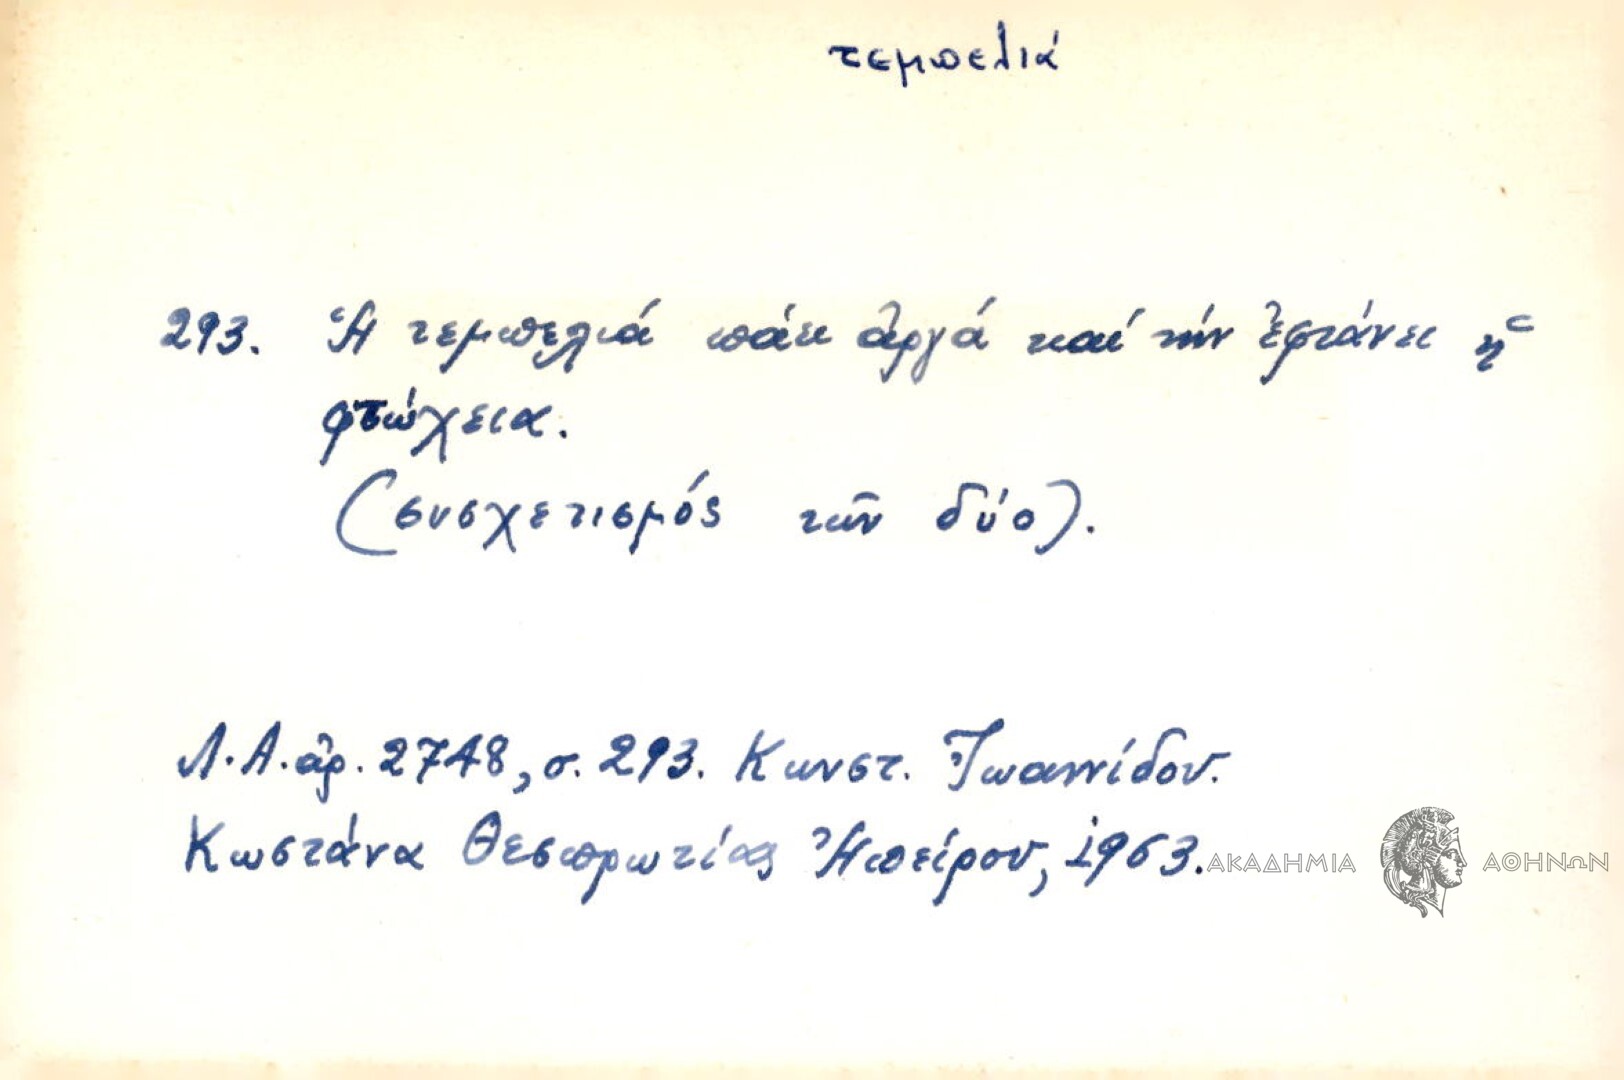 τεμπελιά
293. Ἡ τεμπελιά πάει ἀργά καί τήν ἐφτάνει ἡ
φτώχεια.
(συσχετισμός τῶν δύο).
Λ.Α. ἀρ. 2748, σ. 293. Κωνστ. Ἰωαννίδου.
Κωστάνα Θεσπρωτίας Ἠπείρου, 1963.
ΑΚΑΔΗΜΙΑ ΑΘΗΝΩΝ